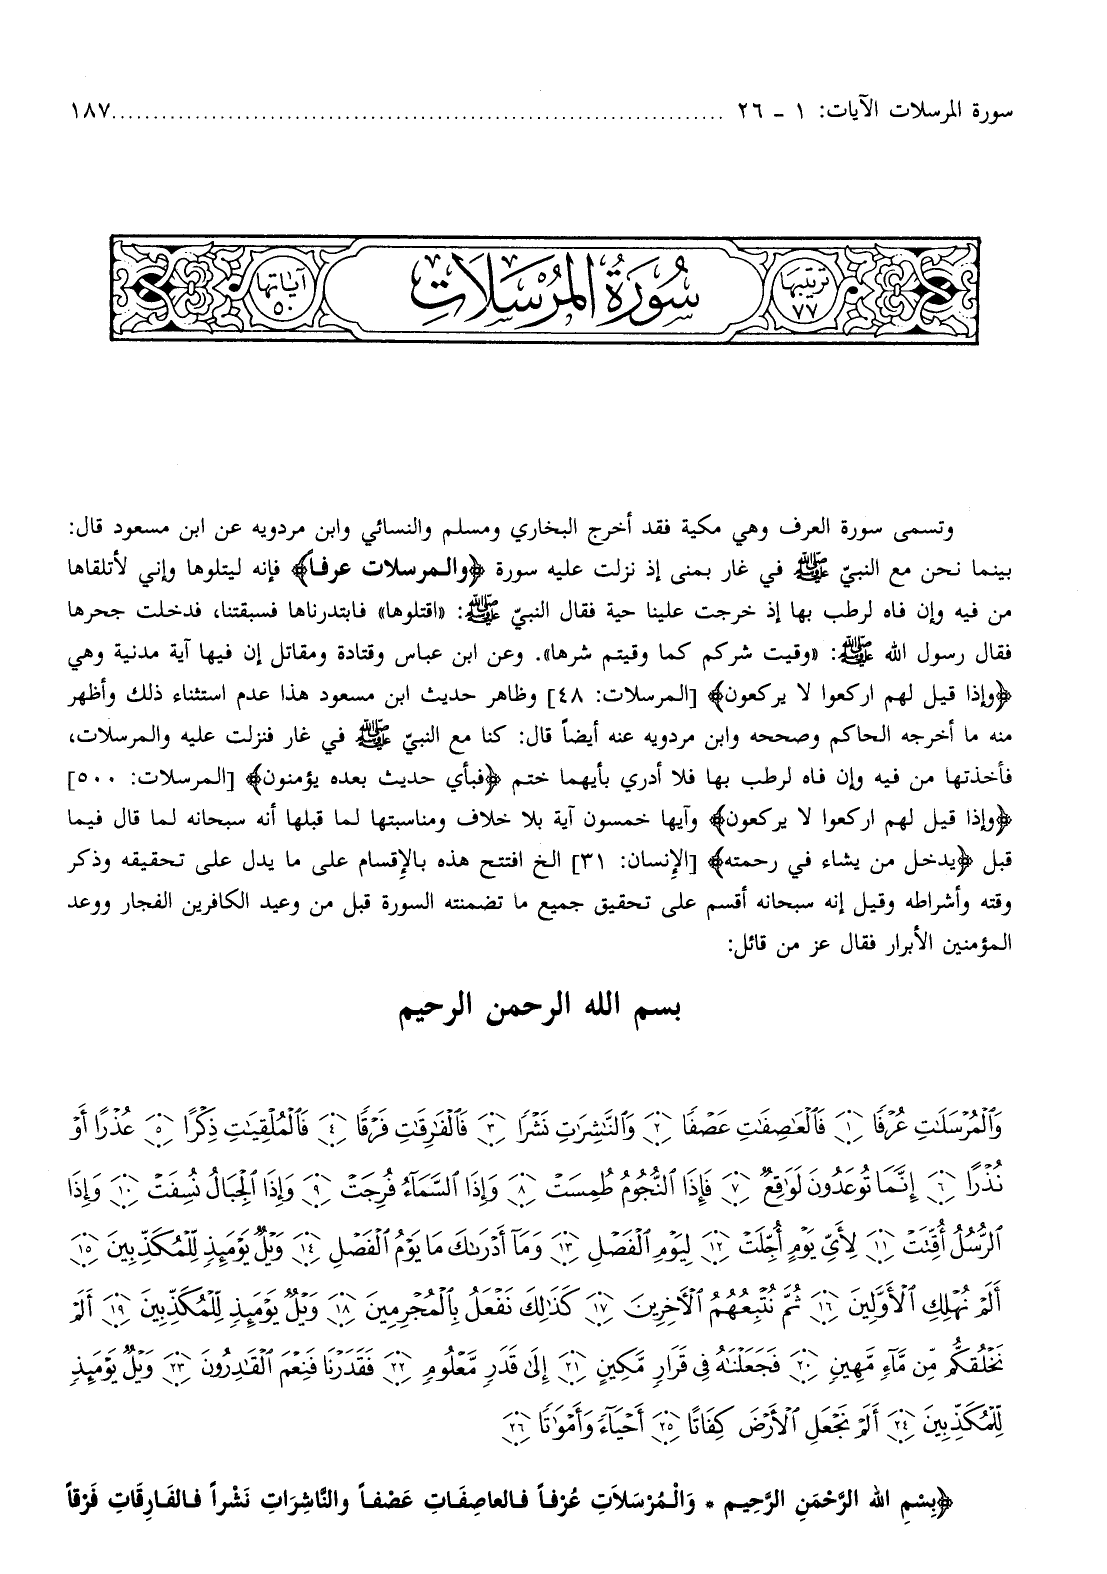 سورة المرسلات الآيات: ١ ـ ٢٦ ........................................................................ ١٨٧
ترتيبها ٧٧ سُورَةُ المُرْسَلَاتِ آياتها ٥٠
وتسمى سورة العرف وهي مكية فقد أخرج البخاري ومسلم والنسائي وابن مردويه عن ابن مسعود قال:
بينما نحن مع النبيّ ﷺ في غار بمنى إذ نزلت عليه سورة ﴿والمرسلات عرفاً﴾ فإنه ليتلوها وإني لأتلقاها
من فيه وإن فاه لرطب بها إذ خرجت علينا حية فقال النبيّ ﷺ: «اقتلوها» فابتدرناها فسبقتنا، فدخلت جحرها
فقال رسول الله ﷺ: «وقيت شركم كما وقيتم شرها». وعن ابن عباس وقتادة ومقاتل إن فيها آية مدنية وهي
﴿وإذا قيل لهم اركعوا لا يركعون﴾ [المرسلات: ٤٨] وظاهر حديث ابن مسعود هذا عدم استثناء ذلك وأظهر
منه ما أخرجه الحاكم وصححه وابن مردويه عنه أيضاً قال: كنا مع النبيّ ﷺ في غار فنزلت عليه والمرسلات،
فأخذتها من فيه وإن فاه لرطب بها فلا أدري بأيهما ختم ﴿فبأي حديث بعده يؤمنون﴾ [المرسلات: ٥٠٠]
﴿وإذا قيل لهم اركعوا لا يركعون﴾ وآيها خمسون آية بلا خلاف ومناسبتها لما قبلها أنه سبحانه لما قال فيما
قبل ﴿يدخل من يشاء في رحمته﴾ [الإنسان: ٣١] الخ افتتح هذه بالإقسام على ما يدل على تحقيقه وذكر
وقته وأشراطه وقيل إنه سبحانه أقسم على تحقيق جميع ما تضمنته السورة قبل من وعيد الكافرين الفجار ووعد
المؤمنين الأبرار فقال عز من قائل:
بسم الله الرحمن الرحيم
وَٱلْمُرْسَلَٰتِ عُرْفًا ﴿١﴾ فَٱلْعَٰصِفَٰتِ عَصْفًا ﴿٢﴾ وَٱلنَّٰشِرَٰتِ نَشْرًا ﴿٣﴾ فَٱلْفَٰرِقَٰتِ فَرْقًا ﴿٤﴾ فَٱلْمُلْقِيَٰتِ ذِكْرًا ﴿٥﴾ عُذْرًا أَوْ
نُذْرًا ﴿٦﴾ إِنَّمَا تُوعَدُونَ لَوَٰقِعٌ ﴿٧﴾ فَإِذَا ٱلنُّجُومُ طُمِسَتْ ﴿٨﴾ وَإِذَا ٱلسَّمَآءُ فُرِجَتْ ﴿٩﴾ وَإِذَا ٱلْجِبَالُ نُسِفَتْ ﴿١٠﴾ وَإِذَا
ٱلرُّسُلُ أُقِّتَتْ ﴿١١﴾ لِأَىِّ يَوْمٍ أُجِّلَتْ ﴿١٢﴾ لِيَوْمِ ٱلْفَصْلِ ﴿١٣﴾ وَمَآ أَدْرَىٰكَ مَا يَوْمُ ٱلْفَصْلِ ﴿١٤﴾ وَيْلٌ يَوْمَئِذٍ لِّلْمُكَذِّبِينَ ﴿١٥﴾
أَلَمْ نُهْلِكِ ٱلْأَوَّلِينَ ﴿١٦﴾ ثُمَّ نُتْبِعُهُمُ ٱلْءَاخِرِينَ ﴿١٧﴾ كَذَٰلِكَ نَفْعَلُ بِٱلْمُجْرِمِينَ ﴿١٨﴾ وَيْلٌ يَوْمَئِذٍ لِّلْمُكَذِّبِينَ ﴿١٩﴾ أَلَمْ
نَخْلُقكُّم مِّن مَّآءٍ مَّهِينٍ ﴿٢٠﴾ فَجَعَلْنَٰهُ فِى قَرَارٍ مَّكِينٍ ﴿٢١﴾ إِلَىٰ قَدَرٍ مَّعْلُومٍ ﴿٢٢﴾ فَقَدَرْنَا فَنِعْمَ ٱلْقَٰدِرُونَ ﴿٢٣﴾ وَيْلٌ يَوْمَئِذٍ
لِّلْمُكَذِّبِينَ ﴿٢٤﴾ أَلَمْ نَجْعَلِ ٱلْأَرْضَ كِفَاتًا ﴿٢٥﴾ أَحْيَآءً وَأَمْوَٰتًا ﴿٢٦﴾
﴿بِسْمِ الله الرَّحْمَنِ الرَّحِيم * وَالْمُرْسَلاَتِ عُرْفاً فَالعاصِفَاتِ عَصْفاً والنَّاشِرَاتِ نَشْراً فَالفَارِقَاتِ فَرْقاً